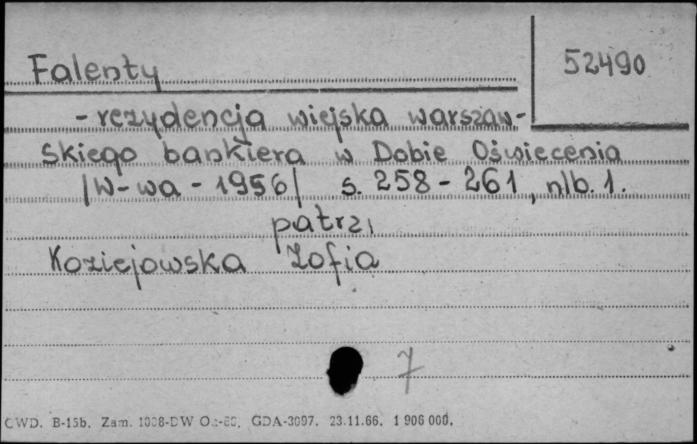 Falenty
52490
- rezydencja wiejska warszaw-
skiego bankiera w Dobie Oświecenia
/W-wa - 1956/ s. 258 - 261, nlb. 1.
patrz,
Koziejowska Zofia
7
CWD. B-15b. Zam. GDA-3097. 23.11.66. 1 906 000.